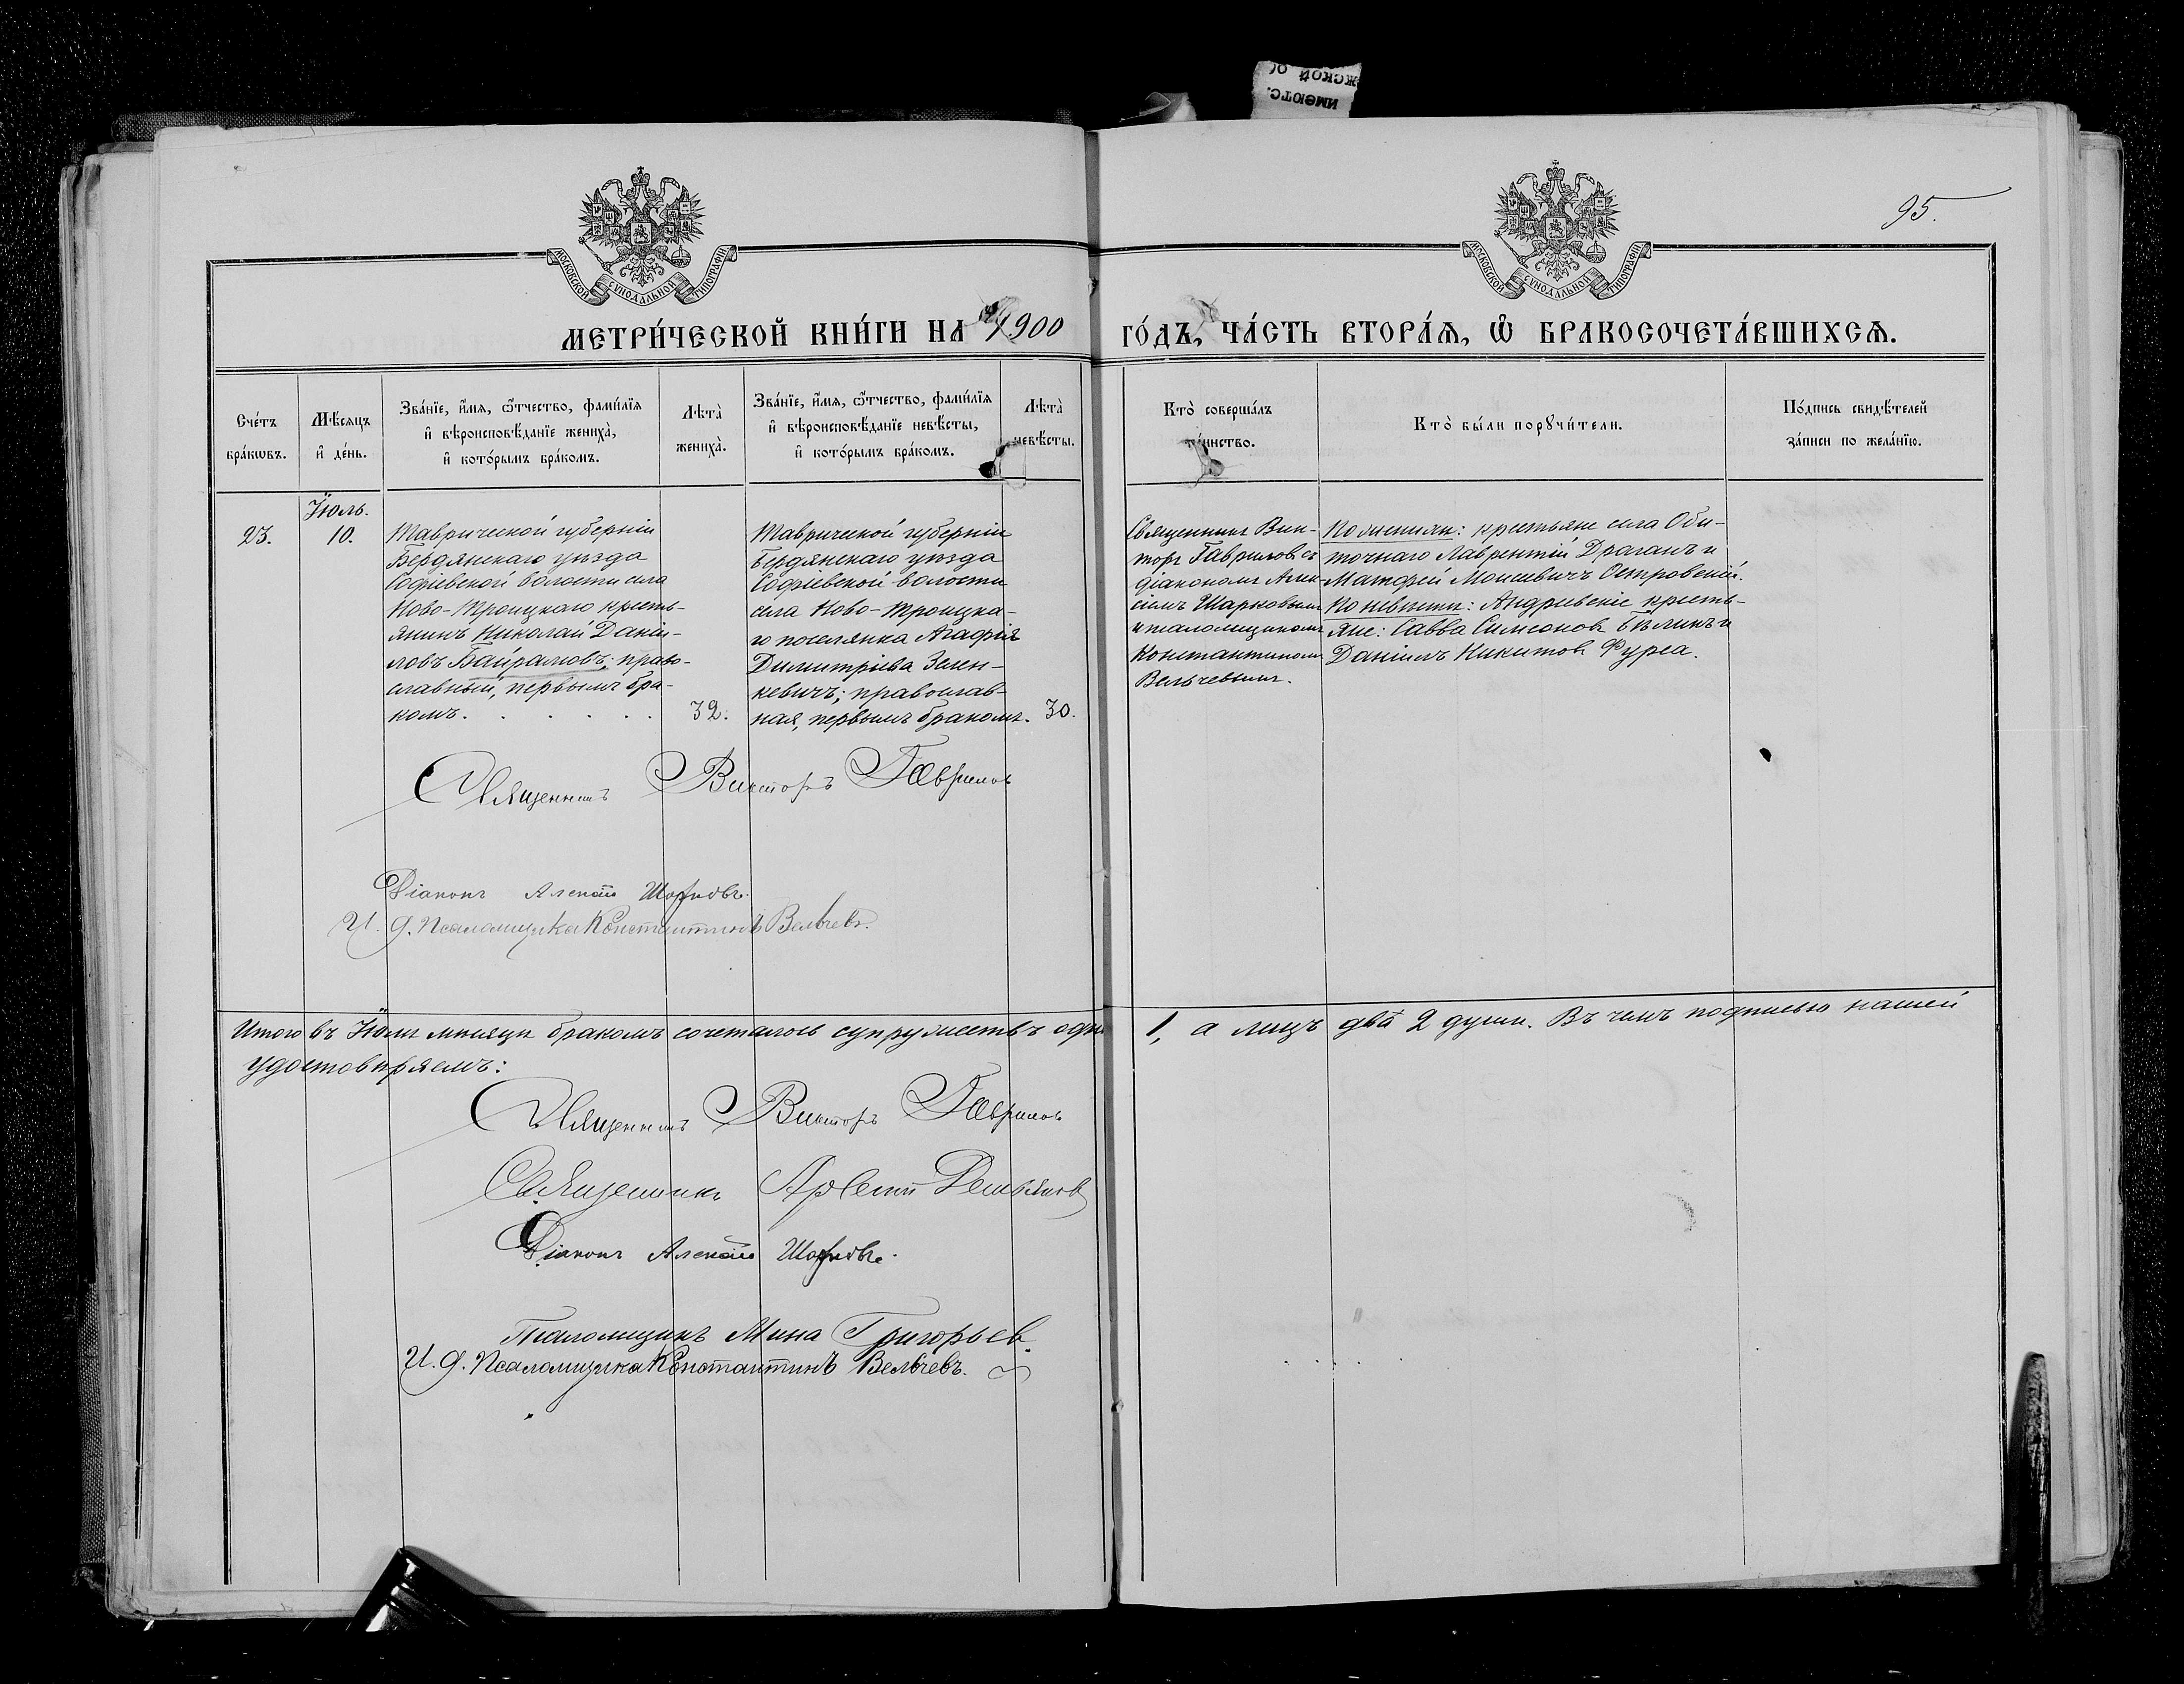 ИМѢЮТС.
ЖСКОЙ О
95.
МОСКОВСКОЙ СѴНОДАЛЬНОЙ ТИПОГРАФІИ
МОСКОВСКОЙ СѴНОДАЛЬНОЙ ТИПОГРАФІИ
МЕТРИ́ЧЕСКОЙ КНИ́ГИ НА 1900 ГО́ДЪ, ЧА́СТЬ ВТОРА́Ѧ, Ѽ БРАКОСОЧЕТА́ВШИХСѦ.
Сче́тъ
бра́кѡвъ.
Мѣ́сяцъ
и҆ де́нь.
Зва́нїе, и҆́мѧ, ѻ҆́тчество, фами́лїѧ
и҆ вѣроисповѣ́данїе жениха̀,
и҆ кото́рымъ бра́комъ.
Лѣта̀
жениха̀.
Зва́нїе, и҆́мѧ, ѻ҆́тчество, фами́лїѧ
и҆ вѣроисповѣ́данїе невѣ́сты,
и҆ кото́рымъ бра́комъ.
Лѣта̀
невѣ́сты.
Кто̀ соверша́лъ
та́инство.
Кто̀ бы́ли порꙋчи́тели.
По́дпись свидѣ́телей
за́писи по жела́нїю.
23.
Іюль.
10.
Таврической губерніи
Бердянскаго уѣзда
Софіевской волости села
Ново-Троицкаго кресть-
янинъ Николай Даніи-
ловъ Байрамовъ; право-
славный, первымъ бра-
комъ. . . . . . .
32.
Таврической губерніи
Бердянскаго уѣзда
Софіевской волости
села Ново-Троицка-
го поселянка Агафія
Димитріева Зелен-
кевичъ; православ-
ная, первымъ бракомъ.
30.
Священникъ Вик-
торъ Гавриловъ съ
діакономъ Алек-
сіемъ Шарковымъ
и псаломщикомъ
Константиномъ
Вельчевымъ.
По женихѣ: крестьяне села Оби-
точнаго Лаврентій Драганъ и
Матфей Моисеевичъ Островскій.
По невѣстѣ: Андреевскіе кресть-
яне: Савва Симеоновъ Бѣликъ и
Даніилъ Никитовъ Фурса.
Священникъ Викторъ Гавриловъ
Діаконъ Алексій Шарковъ.
И. д. Псаломщика Константинъ Вельчевъ.
Итого въ Іюлѣ мѣсяцѣ бракомъ сочеталось супружествъ одно 1, а лицъ два 2 души. Въ чемъ подписью нашей
удостовѣряемъ:
Священникъ Викторъ Гавриловъ
Священникъ Арсеній Демьяновъ
Діаконъ Алексій Шарковъ.
Псаломщикъ Мина Григорьев.
И. д. Псаломщика Константинъ Вельчевъ.